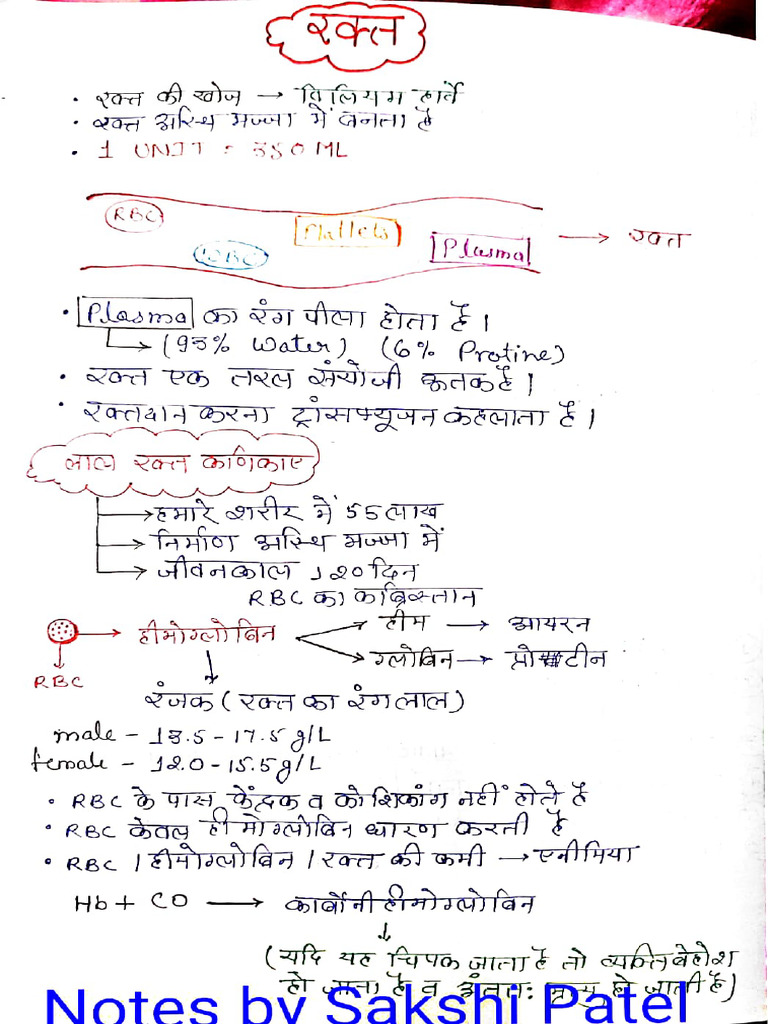 रक्त
• रक्त की खोज → विलियम हार्वे
• रक्त अस्थि मज्जा में बनता है
• 1 UNIT = 350 ML
RBC WBC Platlets Plasma → रक्त
• Plasma का रंग पीला होता है।
(93% Water) (6% Protine)
• रक्त एक तरल संयोजी ऊतक है।
• रक्तदान करना ट्रांसफ्यूजन कहलाता है।
लाल रक्त कणिकाए
→ हमारे शरीर में 55 लाख
→ निर्माण अस्थि मज्जा में
→ जीवनकाल 120 दिन
RBC का कब्रिस्तान
→ हीमोग्लोबिन हीम → आयरन
ग्लोबिन → प्रोटीन
RBC
रंजक (रक्त का रंग लाल)
male - 13.5 - 17.5 g/L
female - 12.0 - 15.5 g/L
• RBC के पास केंद्रक व कोशिकांग नहीं होते है
• RBC केवल हीमोग्लोबिन धारण करती है
• RBC / हीमोग्लोबिन / रक्त की कमी → एनीमिया
Hb + CO → कार्बोनी हीमोग्लोबिन
(यदि यह चिपक जाता है तो व्यक्ति बेहोश
हो जाता है व अंततः मृत्यु हो जाती है)
Notes by Sakshi Patel